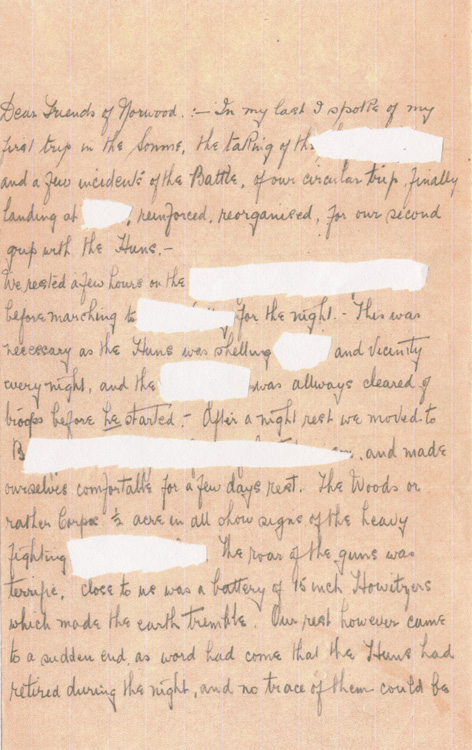 Dear Friends of Norwood. :- In my last I spoke of my
first trip in the Somme, the taking of
and a few incidents of the Battle, of our circular trip, finally
landing at , reinforced, reorganised, for our second
grip with the Huns.-
We rested a few hours on the
before marching to for the night.- This was
necessary as the Huns was shelling and vicinity
every night, and the was allways cleared of
troops before he started.- After a night rest we moved to
B , and made
ourselves comfortable for a few days rest. The Woods or
rather Corpse ½ acre in all show signs of the heavy
fighting The roar of the guns was
terrific, close to us was a battery of 15 inch Howitzers
which made the earth tremble. Our rest however came
to a sudden end, as word had come that the Huns had
retired during the night, and no trace of them could be